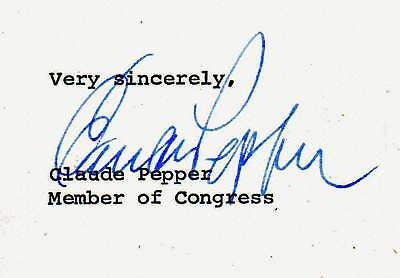 Very sincerely,
Claude Pepper
Claude Pepper
Member of Congress